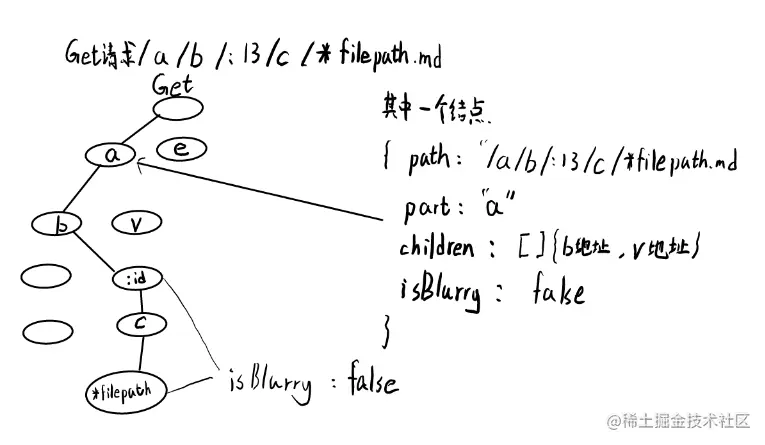 Get请求/a/b/:13/c/*filepath.md
Get
其中一个结点
a
e
{ path: "/a/b/:13/c/*filepath.md
part: "a"
b
v
children: []{b地址,v地址}
:id
isBlurry: false
c
}
*filepath
isBlurry: false
@稀土掘金技术社区